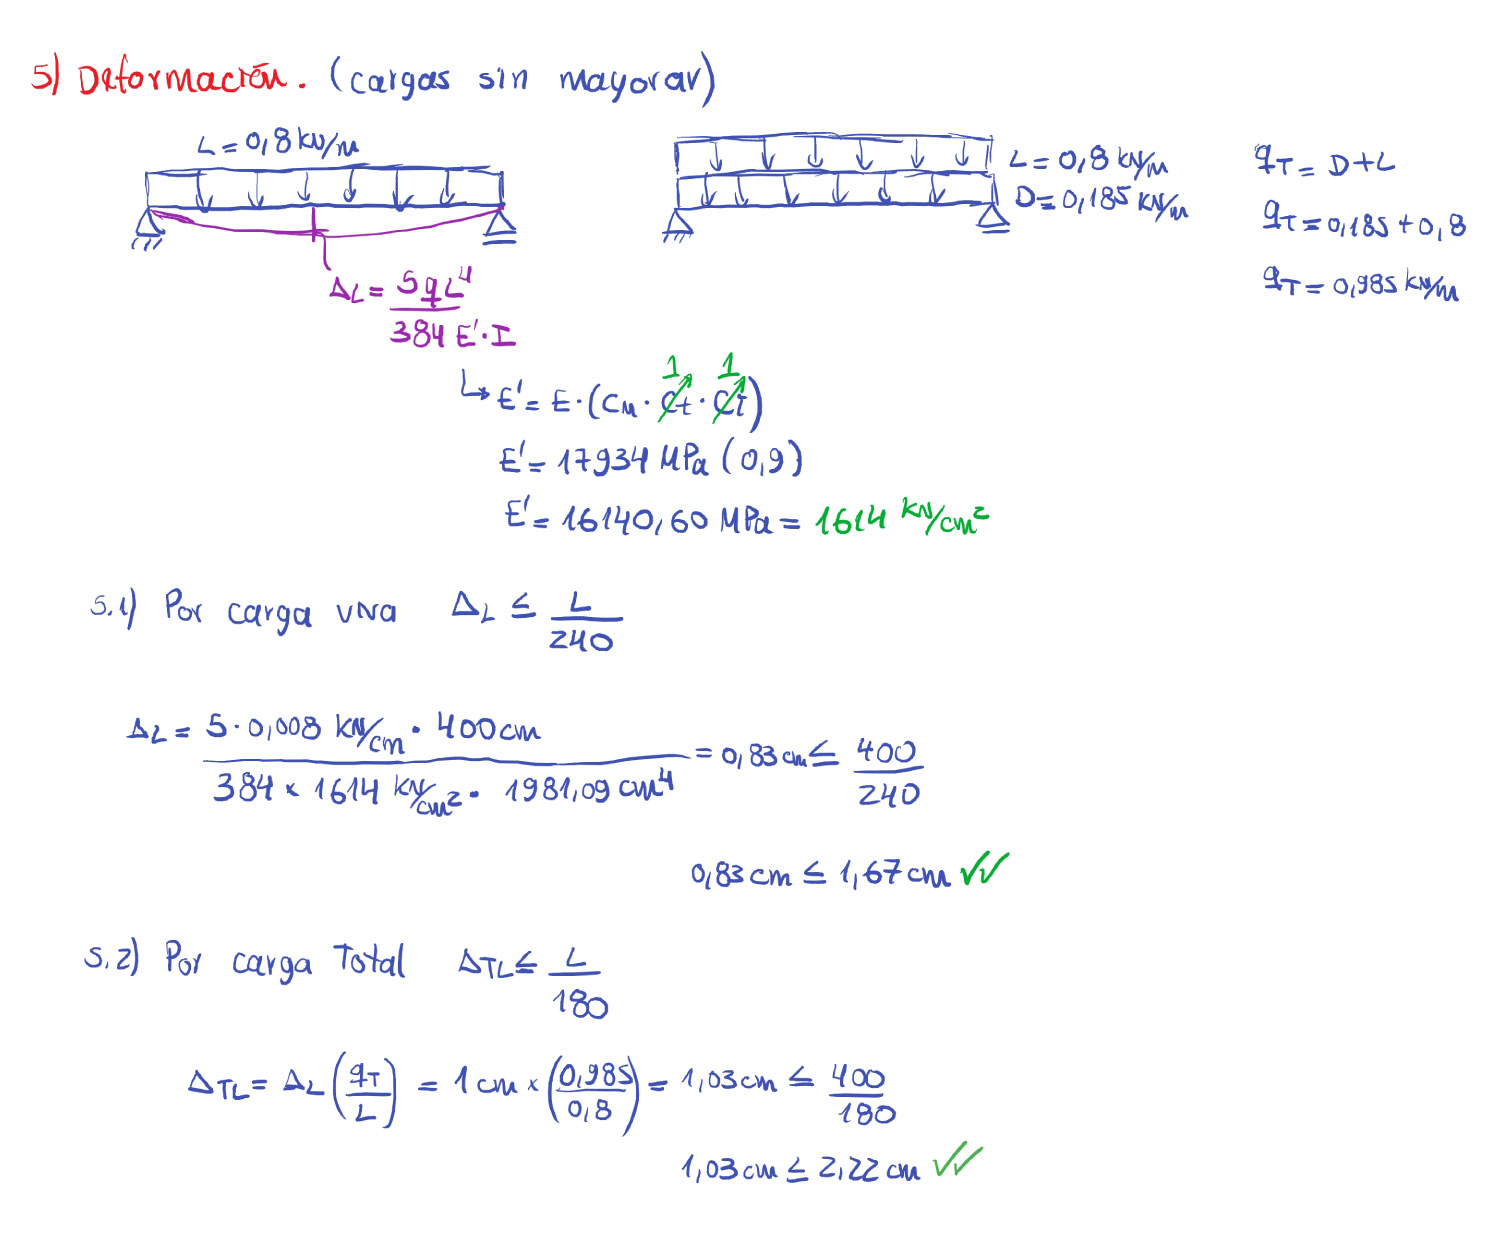 5) Deformación. (cargas sin mayorar)
L = 0,8 kN/m
L = 0,8 kN/m
D = 0,185 kN/m
qT = D + L
qT = 0,185 + 0,8
qT = 0,985 kN/m
ΔL = 5 q L⁴ / 384 E'·I
↳ E' = E · (CM · Ct · Ci)
1 1
E' = 17934 MPa (0,9)
E' = 16140,60 MPa = 1614 kN/cm²
5.1) Por carga viva ΔL ≤ L / 240
ΔL = 5 · 0,008 kN/cm · 400 cm / 384 × 1614 kN/cm² · 1981,09 cm⁴ = 0,83 cm ≤ 400 / 240
0,83 cm ≤ 1,67 cm ✓✓
5.2) Por carga Total ΔTL ≤ L / 180
ΔTL = ΔL (qT / L) = 1 cm × (0,985 / 0,8) = 1,03 cm ≤ 400 / 180
1,03 cm ≤ 2,22 cm ✓✓